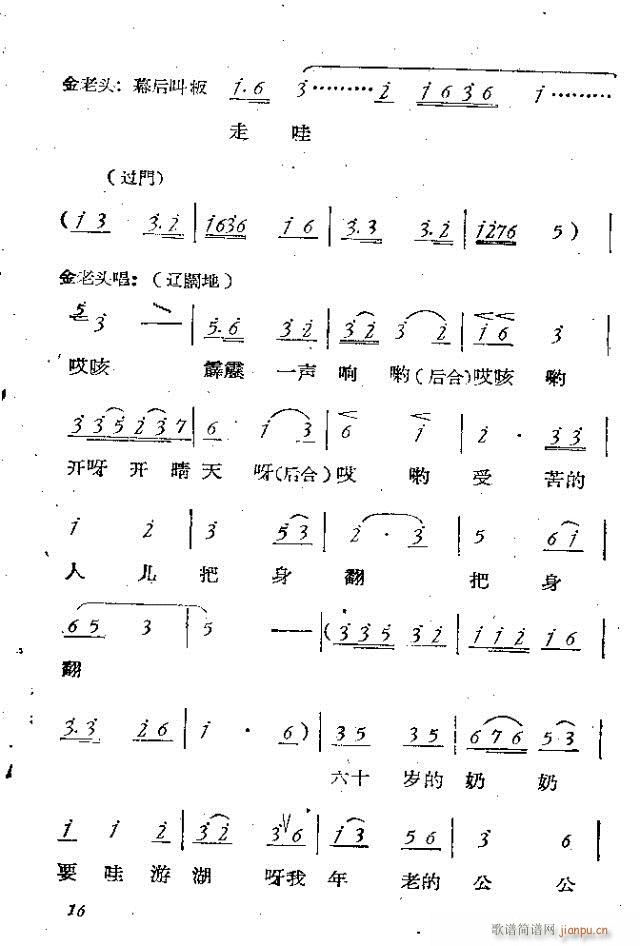 金老头：幕后叫板 1.6 3………2 1636 1………
走 哇
（过門）
(13 3.2 | 1636 16 | 3.3 3.2 | 1276 5) |
金老头唱：（辽闊地）
5 3 — | 5.6 32 | 32 32 | 16 3 |
哎咳 霹靂 一声 响 喲(后合)哎咳 喲
335237 | 6 13 | 6 1 | 2 · 33 |
开呀 开 晴 天 呀(后合)哎 喲 受 苦的
1 2 | 3 53 | 2 · 3 | 5 61 |
人 儿 把 身 翻 把 身
65 3 | 5 — | (335 32 | 112 16 |
翻
3.3 26 | 1 · 6) | 35 35 | 676 53 |
六十 岁的 奶 奶
1 1 2 | 32 36 | 13 56 | 3 6 |
要 哇 游 湖 呀我 年 老的 公 公
16
歌谱简谱网
jianpu.cn